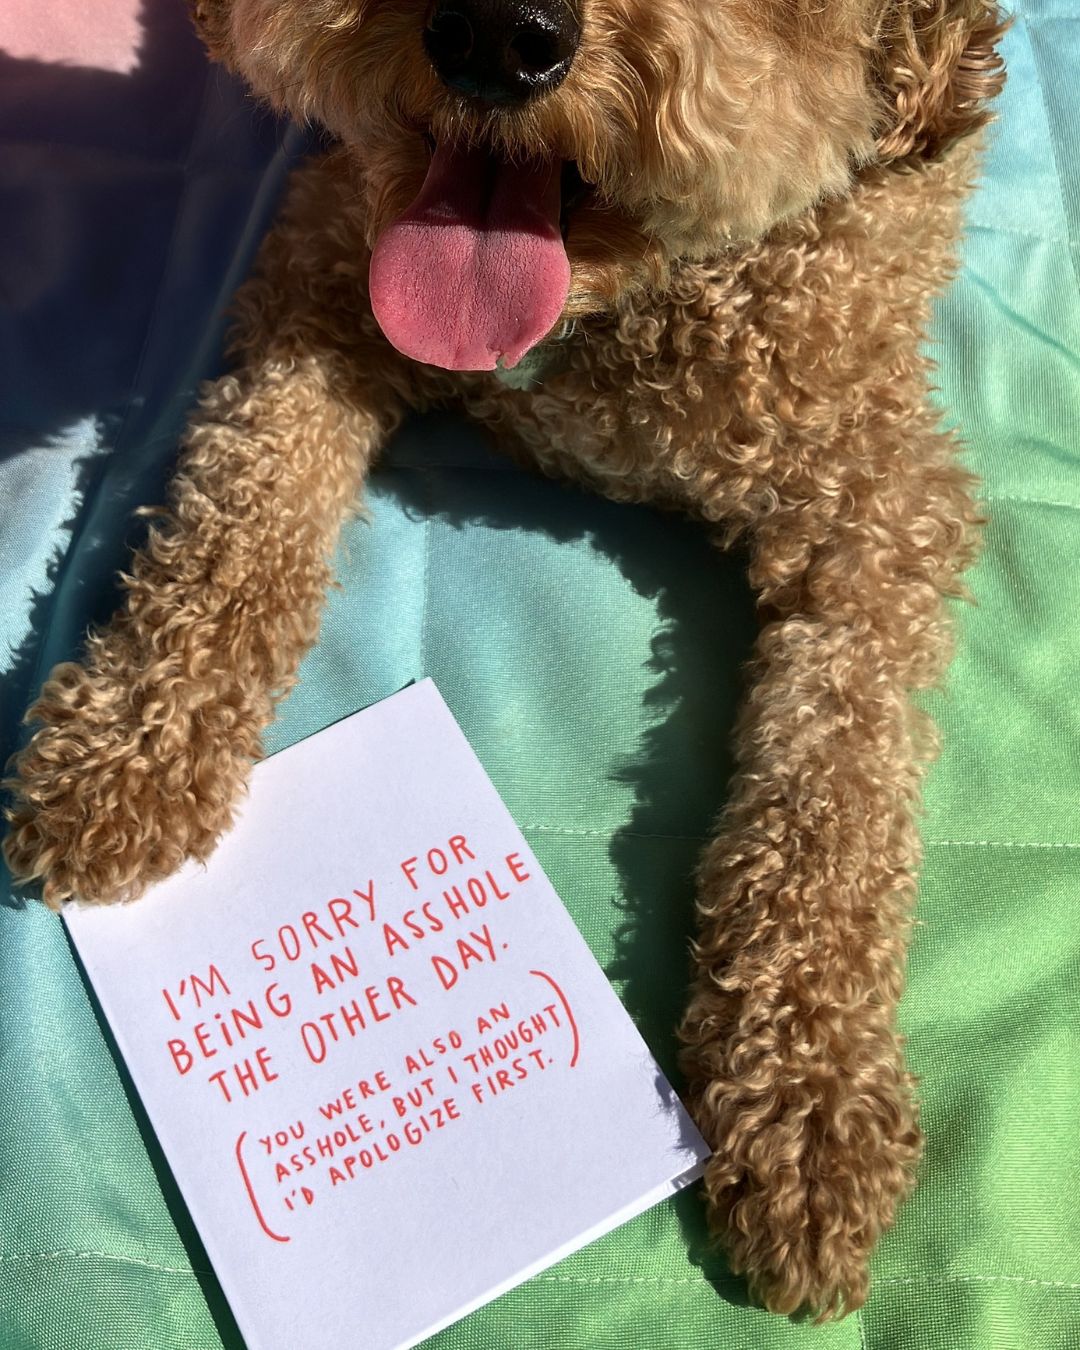 I'M SORRY FOR
BEING AN ASSHOLE
THE OTHER DAY.
(YOU WERE ALSO AN
ASSHOLE, BUT I THOUGHT
I'D APOLOGIZE FIRST.)